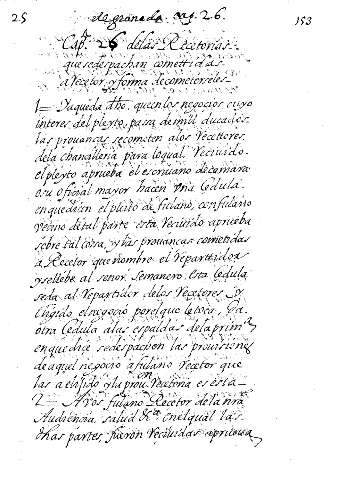 25 de granada. cap. 26. 153
Capº. 26 de las Recetorias
que se despachan cometidas
a Recetor y forma de cometerseles
1 = Ya queda dho, que en los negocios cuyo
interes del pleyto, pasa de mil ducados
las prouanças se cometen a los Recetores
dela chancilleria para lo qual Reciuido
el pleyto aprueba el escriuano de camara
o su oficial mayor hacen Vna Cedula
en que dicen el pleito de fulano, con fulano
vecino de tal parte esta Reciuido aprueba
sobre tal cossa, y las prouanças cometidas
a Recetor que nombre el Repartidor
y se llebe al señor semanero. esta Cedula
se da al Repartidor de los Recetores
el negocio por el que le toca, Da
otra Cedula a las espaldas de la prim.ra
en que dice se despachen las prouisiones
de aquel negocio a fulano Recetor que
las a elegido y la prouon. Recetoria es esta
2 = A Vos fulano Recetor de la nra
Audiencia, salud &a. en el qual las
dhas partes, fueron Reciuidas aprueua